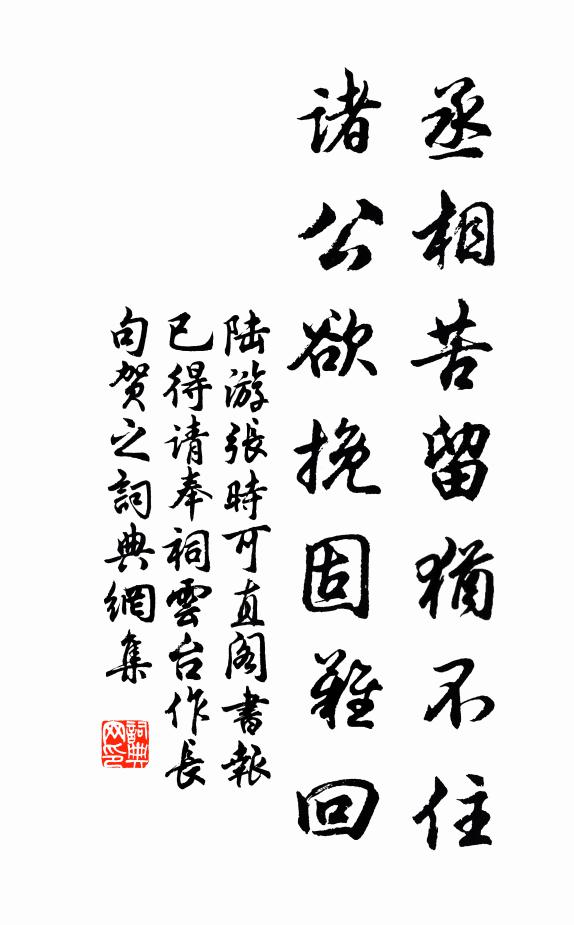 丞相苦留猶不住
諸公欲挽固難回
陆游張時可直阁書報
已得请奉祠雲台作長
句贺之詞典網集
詞典
网印